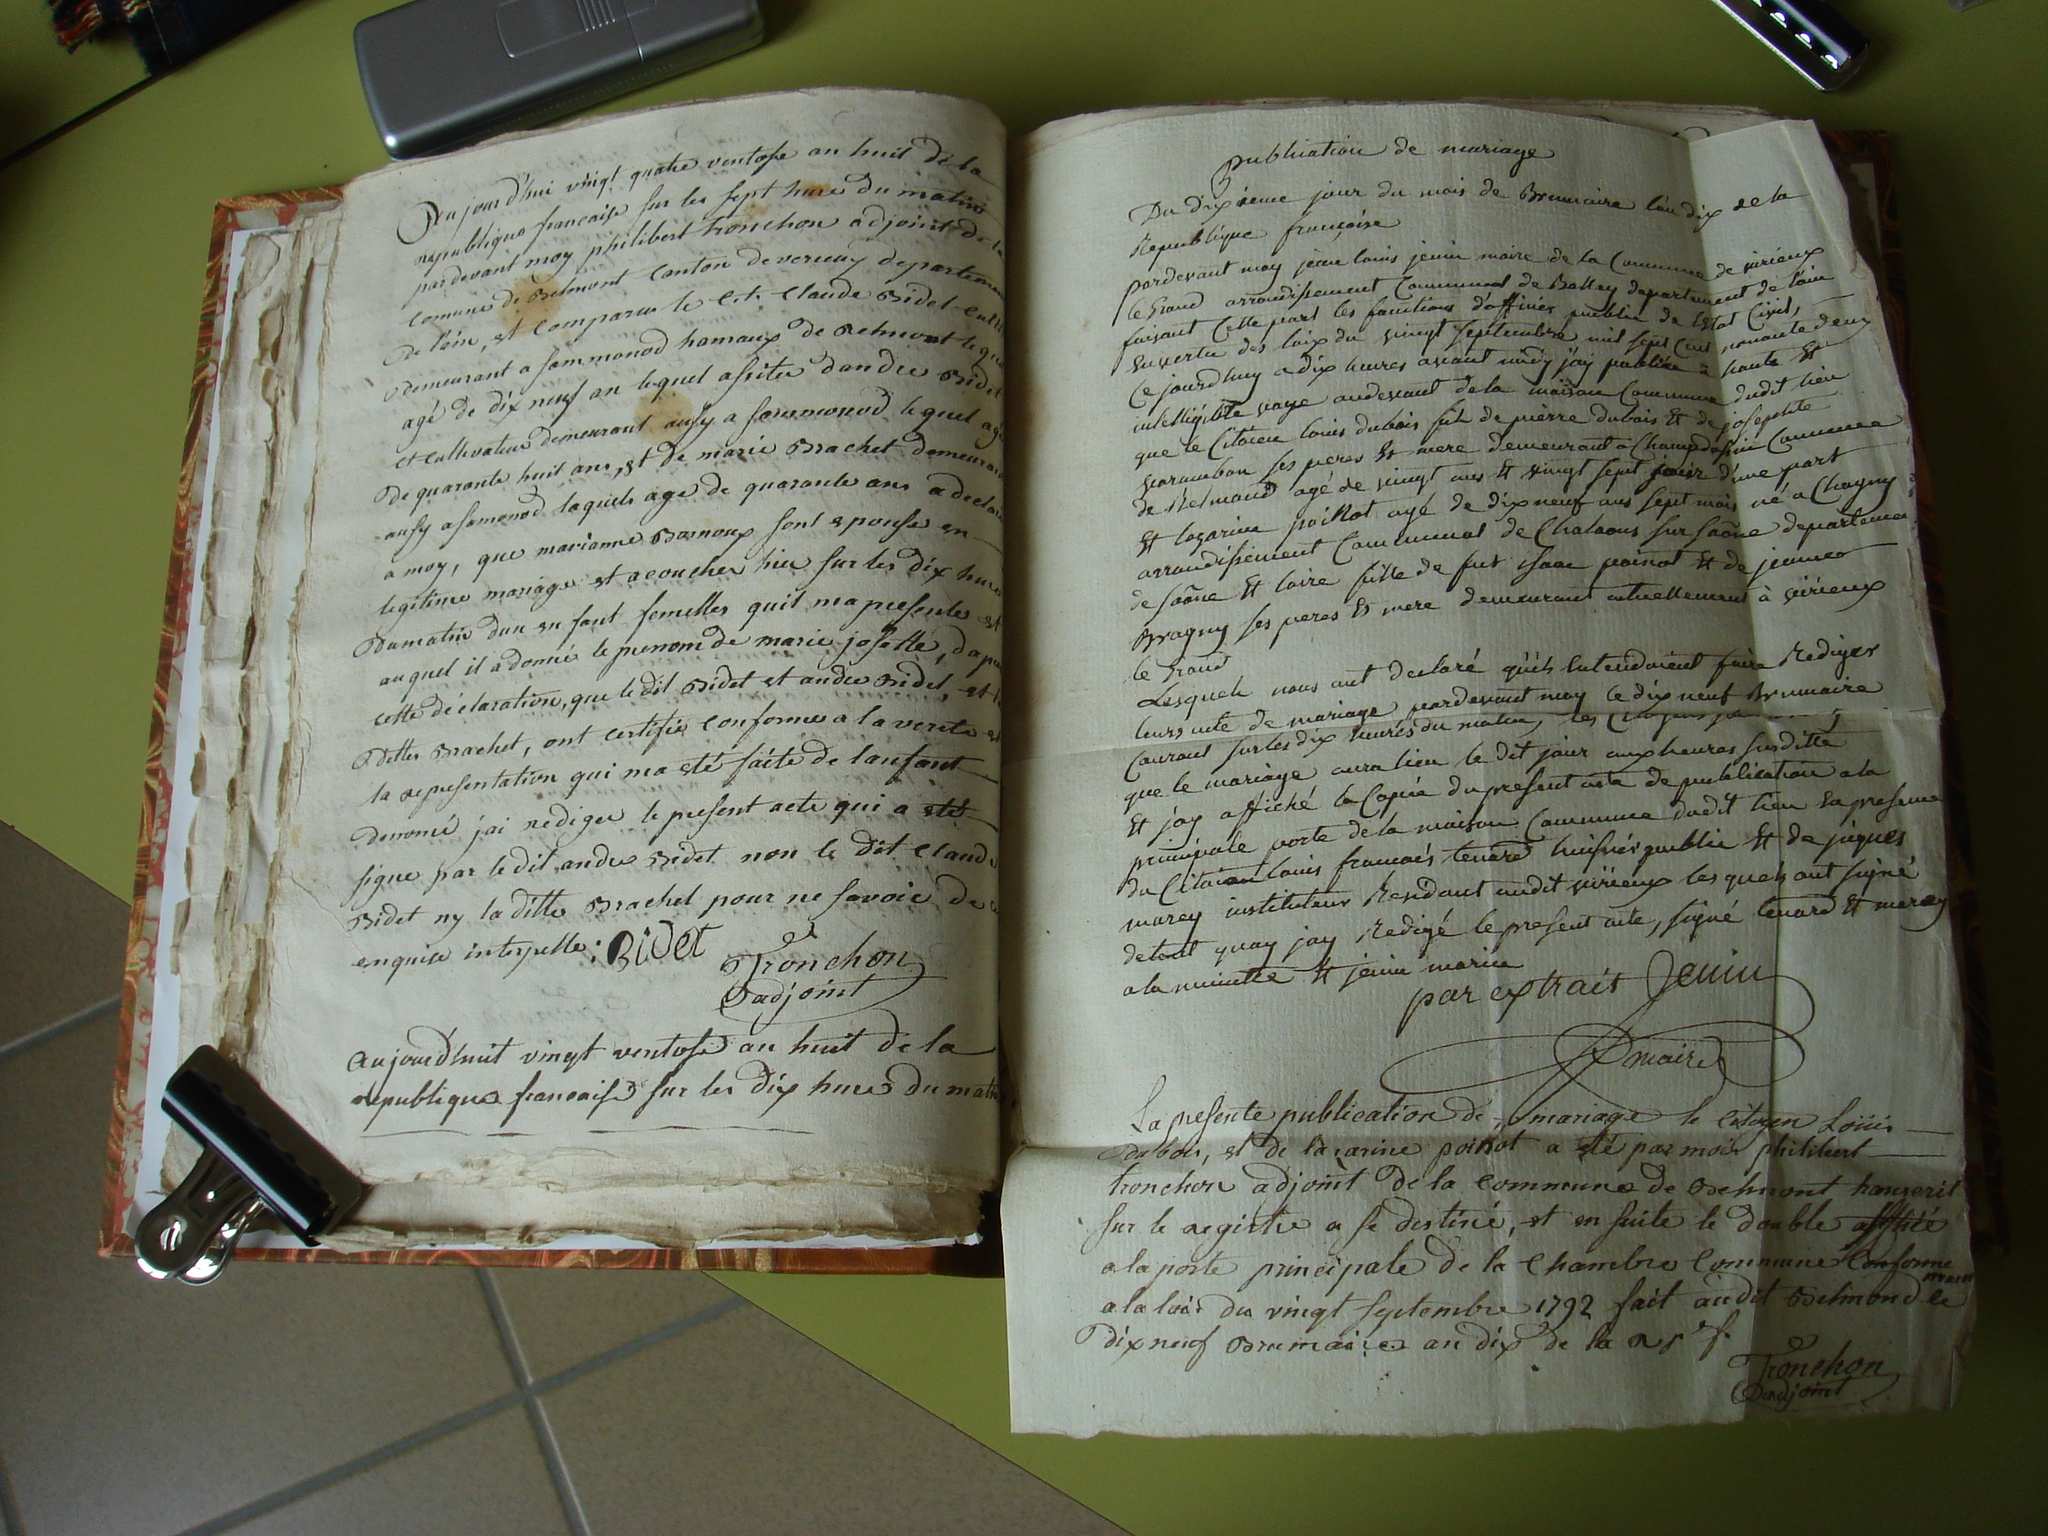 Aujourd'hui vingt quatre ventose an huit de la
republique francaise sur les sept hure du matin
pardevant moy philibert tronchon adjoint de la
comune de Belmont canton de virieux departemen
de lain, est comparus le Cit. Claude Bidet cult
demeurant a sammonod hamaux de Belmont le quel
agé de dix neuf an lequel assiter dandre Bidet
et cultivateur demeurant ausy a sammonod le quel agé
de quarante huit ans, et de marie Brachet demeurant
ausy a samonod laquele age de quarante ans a declaré
a moy, que marianne Bornoux sont epouse en
legitime mariage est acoucher hier sur les dix hure
du matin dun en fant femelles quil ma presente et
auquel il a donné le prenom de marie josette, dapres
cette déclaration, que le dit Bidet et andre Bidet, et la
ditte Brachet, ont certifié conforme a la verite et
la representation qui ma eté faite de lanfant
denomé j'ai rediger le present acte qui a eté
signe par le dit andre Bidet non le dit Claude
Bidet ny la ditte Brachet pour ne savoir de ce
enquise interpelle: Bidet
Tronchon
adjoint
aujourdhuit vingt ventose an huit de la
republique francaise sur les dix hures du matin
publication de mariage
Du dixieme jour du mois de Brumaire l'an dix de la
Republique française
pardevant moy jean louis jenin maire de la Commune de virieux
le Grand arrondissement Communal de Belley departement de l'ain
faisant Cette part les fonctions d'officier public de l'etat Civil,
En vertu des loix du vingt septembre mil sept Cent nonante deux
Ce jourdhuy a dix heures avant midy j'ay publiée à haute et
intelligible voye audevant de la maison Commune dudit lieu
que le Citoien louis dubois fils de pierre dubois et de josephte
varambon ses peres et mere demeurant a Champdossin Commune
de Belmond agé de vingt ans et vingt sept jours d'une part
et lazarine poissot agé de dix neuf ans sept mois né a Chagny
arrondissement Communal de Chalaons sur saône departement
de saône et loire fille de fut isaac poissot et de jeanne
Bragny ses peres et mere demeurant actuellement à virieux
le Grand
Lesquels nous ont declaré qu'ils Entendoient faire Rediger
leurs acte de mariage pardevant moy le dix neuf Brumaire
Courant sur les dix heures du matin, les Citoyens
que le mariage aura lieu le dit jour aux heures susditte
Et j'ay affiché la Copie du present acte de publication a la
principale porte de la maison Commune dudit lieu En presence
du Citoien louis francois tenard huissier public et de jaques
marey instituteur Residant audit virieux les quels ont signé
detout quay jay Redigé le present acte, signé tenard et marey
a la minutte et jenin maire
par extrait Jenin
maire
La presente publication de mariage le citoyen Louis
Dubois, et de lazarine poissot a eté par moi philibert
tronchon adjoint de la commune de Belmont transcrit
sur le registre a se destiné, et en suite le double affiché
a la porte principale de la Chambre Commune Conforme
ment
a la loix du vingt septembre 1792 fait audit Belmond le
Dix neuf Brumaire an dix de la R f.
Tronchon
adjoint